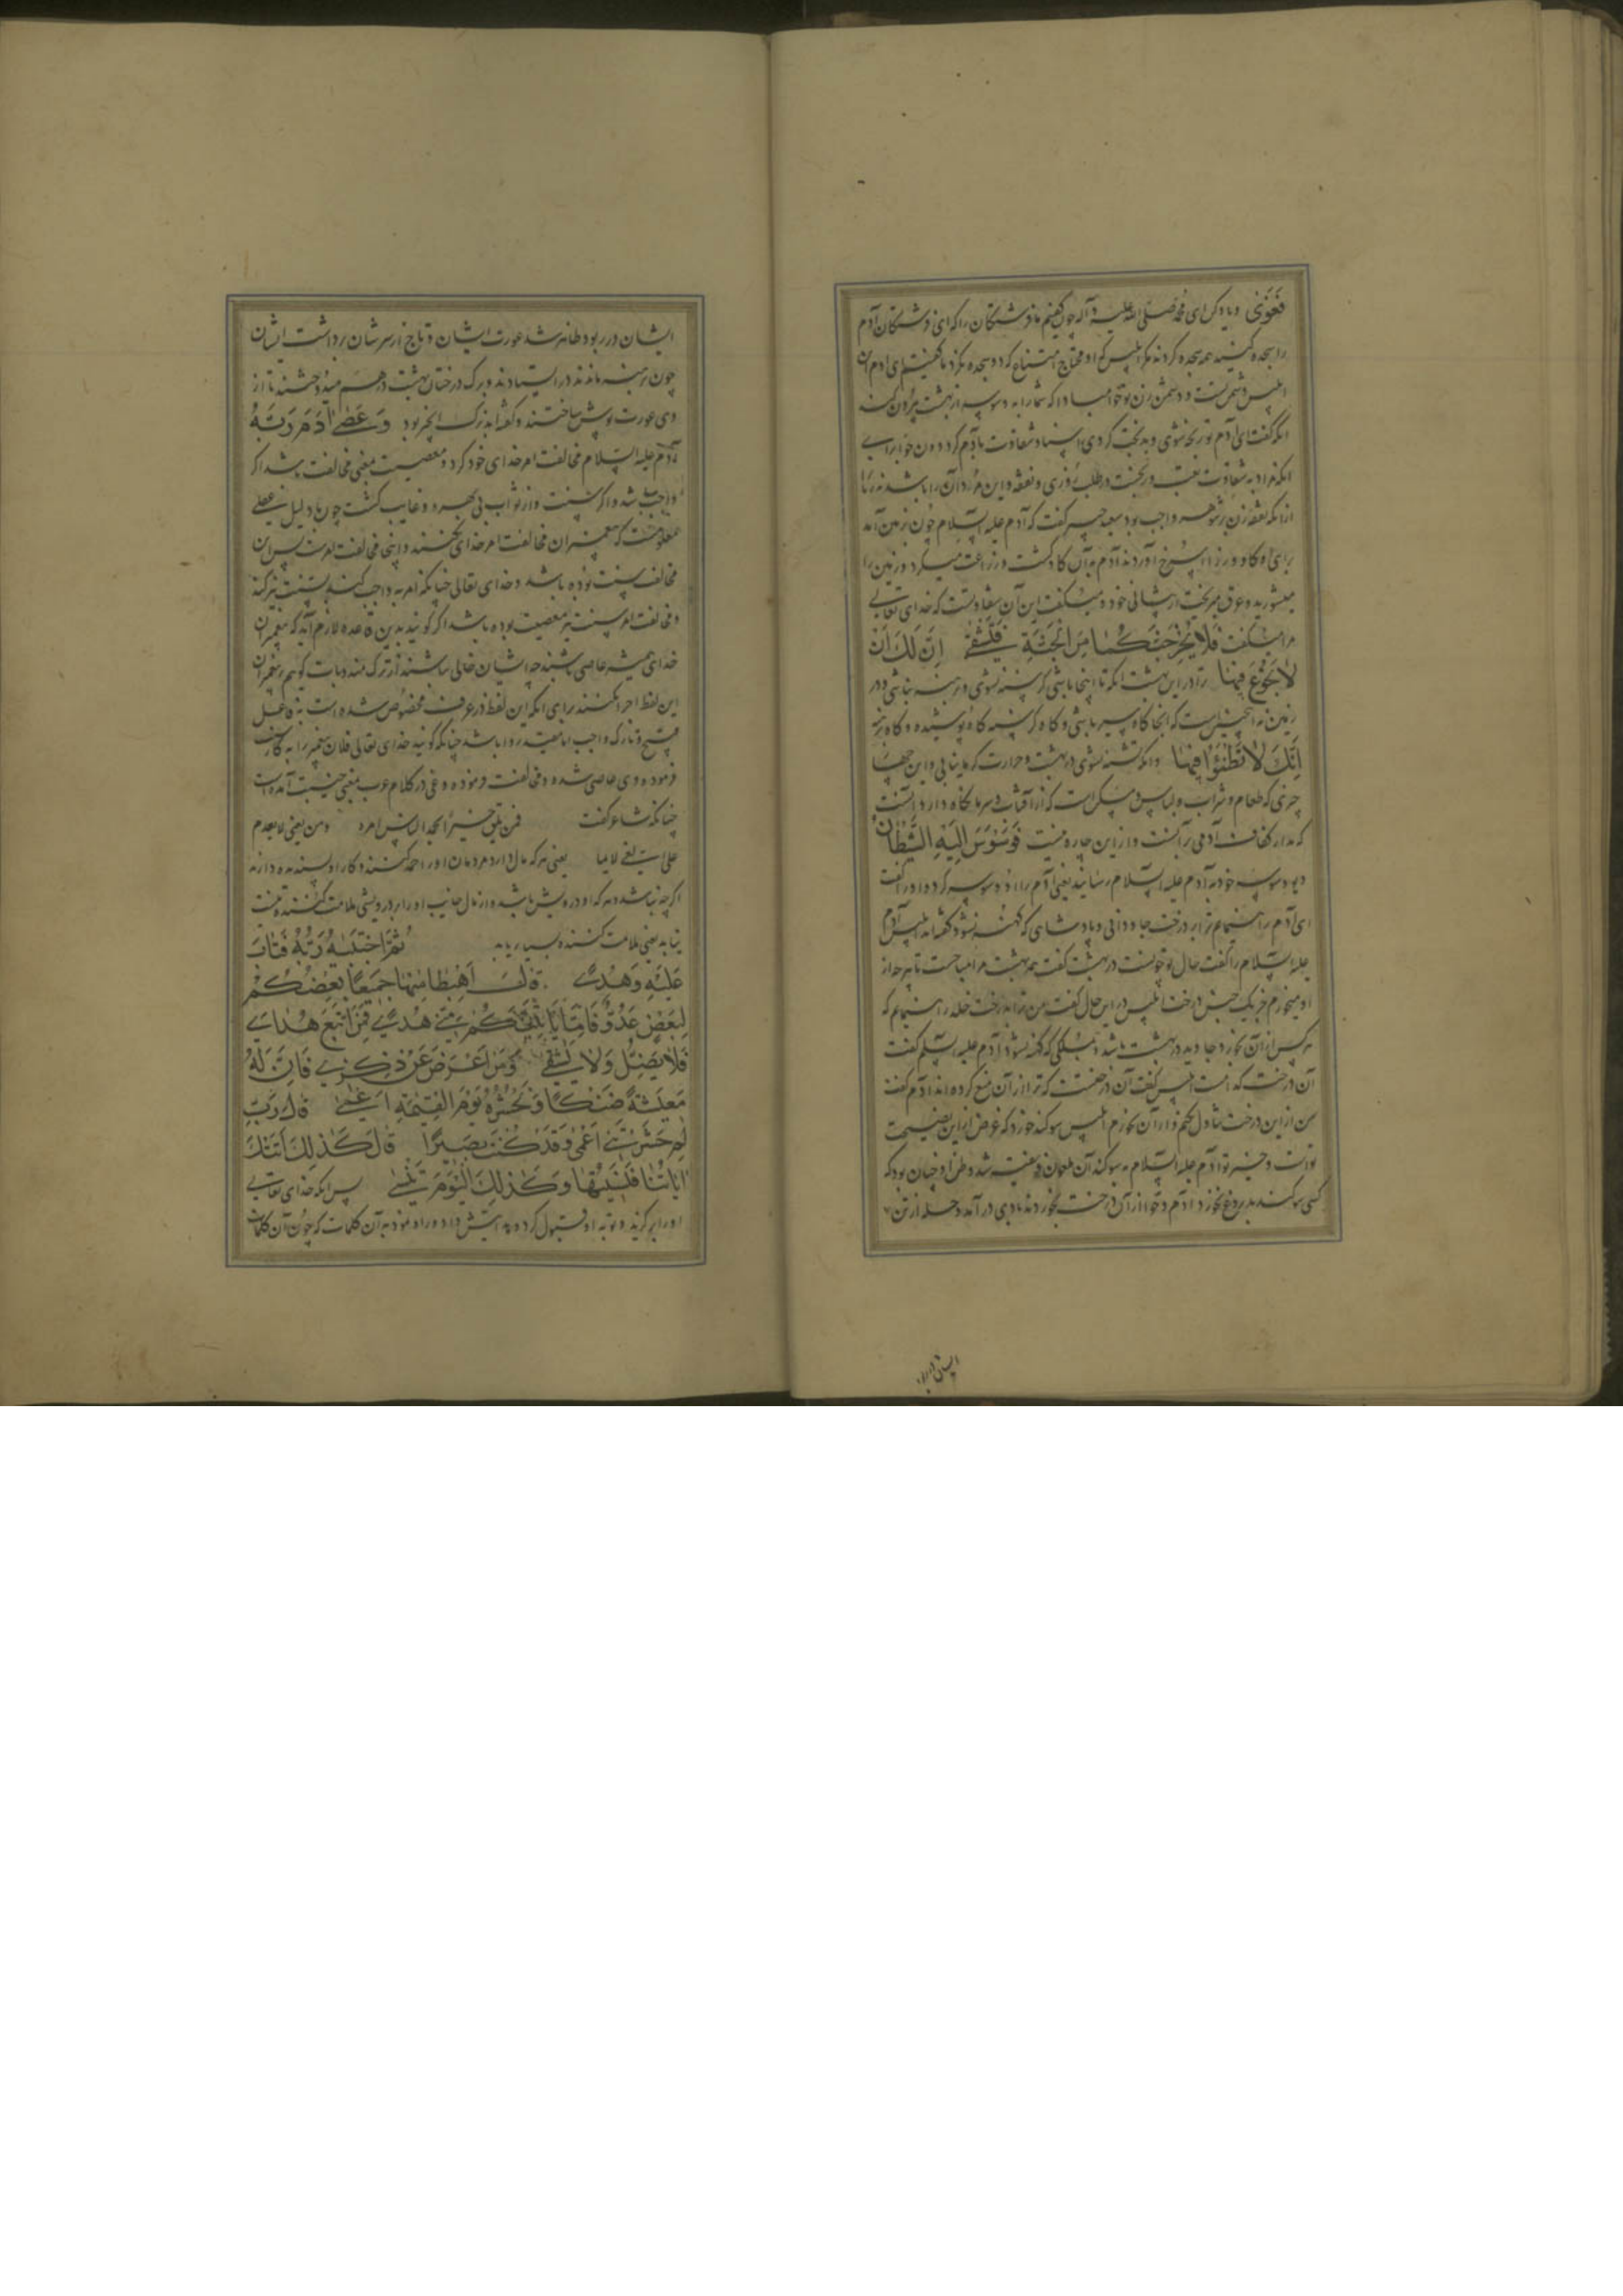 فَغَوَىٰ و یاد کن ای محمد صلی الله علیه و آله چون گفتیم ما فرشتگان را که ای فرشتگان آدم
را سجده کنید همه سجده کردند مگر ابلیس که او امتناع کرد و سجده نکرد ما گفتیم ای آدم این
ابلیس دشمن تست و دشمن زن تو مبادا که شما را به وسوسه از بهشت بیرون کند
انکه گفت ای آدم تو رنجه شوی و بدبخت کردی اسناد شقاوت با آدم کرد دون حوا برای
انکه مراد به شقاوت تعب و رنجست در طلب روزی و نفقه و این مردان را باشد نه زنان را
از انکه نفقه زن بر شوهر واجب بود سعید جبیر گفت که آدم علیه السلام چون بزمین آمد
برای او کاو ورزا سرخ آوردند آدم به آن کاو کشت و زراعت میکرد و زمین را
میشورید و عرق میریخت از پیشانی خود و میگفت این آن شقاوتست که خدای تعالی
مرا میگفت فَلَا يُخْرِجَنَّكُمَا مِنَ الْجَنَّةِ فَتَشْقَىٰ إِنَّ لَكَ أَنْ
لَا تَجُوعَ فِيهَا ترا در این بهشت انکه تا اینجا باشی گرسنه نشوی و برهنه نباشی و در
زمین نه اینچنین است که انجا گاه سیر باشی و گاه گرسنه گاه پوشیده و گاه برهنه
أَنَّكَ لَا تَظْمَؤُا فِيهَا و انکه تشنه نشوی در بهشت و حرارت گرما نیابی و این چهار
چیزی که طعام و شراب و لباس و مسکن است که از آفتاب و سرما نگاه دارد آنست
که مدار کفاف آدمی بر آنست و از این چاره نیست فَوَسْوَسَ إِلَيْهِ الشَّيْطَانُ
دیو وسوسه خود به آدم علیه السلام رسانید یعنی آدم را وسوسه کرد و او را گفت
ای آدم راه نمایم ترا بر درخت جاودانی و پادشاهی که کهنه نشود گفته‌اند ابلیس آدم
علیه السلام را گفت حال تو چونست در بهشت گفت همه بهشت مرا مباحست تا هر چه از
او میخورم جز یک جنس درخت ابلیس در این حال گفت من ترا بدرخت خلد راه نمایم که
هر کس از آن بخورد جاوید در بهشت باشد و ملکی که کهنه نشود آدم علیه السلم گفت
آن درخت کدامست ابلیس گفت آن درختست که ترا از آن منع کرده‌اند آدم گفت
من از این درخت تناول نکنم و از آن نخورم ابلیس سوگند خورد که غرض از این نصیحت
تو است و خیر تو آدم علیه السلام به سوگند آن ملعون فریفته شد و ظن او چنان بود که
کسی سوگند بدروغ نخورد آدم و حوا از آن درخت بخوردند بادی در آمد و حله از تن
ایشان در ربود
ایشان در ربود ظاهر شد عورت ایشان و تاج از سر شان برداشت ایشان
چون برهنه ماندند در ایستادند و برگ درختان بهشت در هم میدوختند تا از
وی عورت پوش ساختند و گفته‌اند برگ انجیر بود وَعَصَىٰ آدَمُ رَبَّهُ
آدم علیه السلام مخالفت امر خدای خود کرد و معصیت معنی مخالفت باشد اگر
واجب باشد و اگر سنت و از ثواب بی بهره و خایب گشت چون به دلیل عقلی
معلومست که پیغمبران مخالفت امر خدای نکنند و اینجا مخالفت امرست پس این
مخالفت سنت بوده باشد و خدای تعالی چنانکه امر به واجب کند به سنت نیز کند
و مخالفت امر سنت نیز معصیت بوده باشد اگر گویند بدین قاعده لازم آید که پیغمبران
خدای همیشه عاصی باشند چه ایشان خالی نباشند از ترک مندوبات گوییم بر پیغمبران
این لفظ اجرا نکنند برای انکه این لفظ در عرف مخصوص شده است به فاعل
قبیح و تارک واجب اما مقید روا باشد چنانکه گویند خدای تعالی فلان پیغمبر را به کاری
فرموده وی عاصی شده و مخالفت نموده و غی در کلام عرب بمعنی خیبت آمده است
چنانکه شاعر گفت فمن یلق خیرا یحمد الناس امره و من یغو لا یعدم
علی الغی لائما یعنی هر که مال دارد مردمان او را حمد کنند و کار او پسندیده دارند
اگر چه نباشد و هر که او درویش باشد و از مال خایب او را بر درویشی ملامت کنند
نیابد یعنی ملامت کننده بسیار یابد ثُمَّ اجْتَبَاهُ رَبُّهُ فَتَابَ
عَلَيْهِ وَهَدَىٰ قَالَ اهْبِطَا مِنْهَا جَمِيعًا بَعْضُكُمْ
لِبَعْضٍ عَدُوٌّ فَإِمَّا يَأْتِيَنَّكُمْ مِنِّي هُدًى فَمَنِ اتَّبَعَ هُدَايَ
فَلَا يَضِلُّ وَلَا يَشْقَىٰ وَمَنْ أَعْرَضَ عَنْ ذِكْرِي فَإِنَّ لَهُ
مَعِيشَةً ضَنْكًا وَنَحْشُرُهُ يَوْمَ الْقِيَامَةِ أَعْمَىٰ قَالَ رَبِّ
لِمَ حَشَرْتَنِي أَعْمَىٰ وَقَدْ كُنْتُ بَصِيرًا قَالَ كَذَٰلِكَ أَتَتْكَ
آيَاتُنَا فَنَسِيتَهَا وَكَذَٰلِكَ الْيَوْمَ تُنْسَىٰ پس انکه خدای تعالی
او را برگزید و توبه او قبول کرد و هدایتش داد و راه نمود به آن کلمات که چون آن کلمات